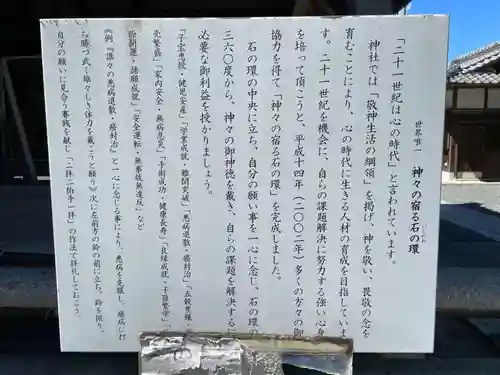 世界唯一 神々の宿る石の環
「二十一世紀は心の時代」と言われています。
神社では「敬神生活の綱領」を掲げ、神を敬い、畏敬の念を
育むことにより、心の時代に生きる人材の育成を目指していま
す。二十一世紀を機会に、自らの課題解決に努力する強い心身
を培って頂こうと、平成十四年(二〇〇二年)多くの方々の御
協力を得て「神々の宿る石の環」を完成しました。
石の環の中央に立ち、自分の願い事を一心に念じ、石の環の
三六〇度から、神々の御神徳を戴き、自らの課題を解決するに
必要な御利益を授かりましょう。
「子宝恵授・健児安産」「学業成就・難関突破」「悪病退散・癌封治」「五穀豊穣・
売繁盛」「家内安全・無病息災」「手術成功・健康長寿」「良縁成就・子孫繁帝」「
除開運・諸願成就」「安全運転・無事故無違反」など
《例「誰々の悪病退散・癌封治」と一心に念じる事により、悪病を克服し、癌病に打
ち勝つ力、雄々しき体力を戴こうと願う》次に左前方の鈴の前に立ち、鈴を振り、
自分の願いに見合う賽銭を献じ「二拝二拍手一拝」の作法で拝礼しておこう。